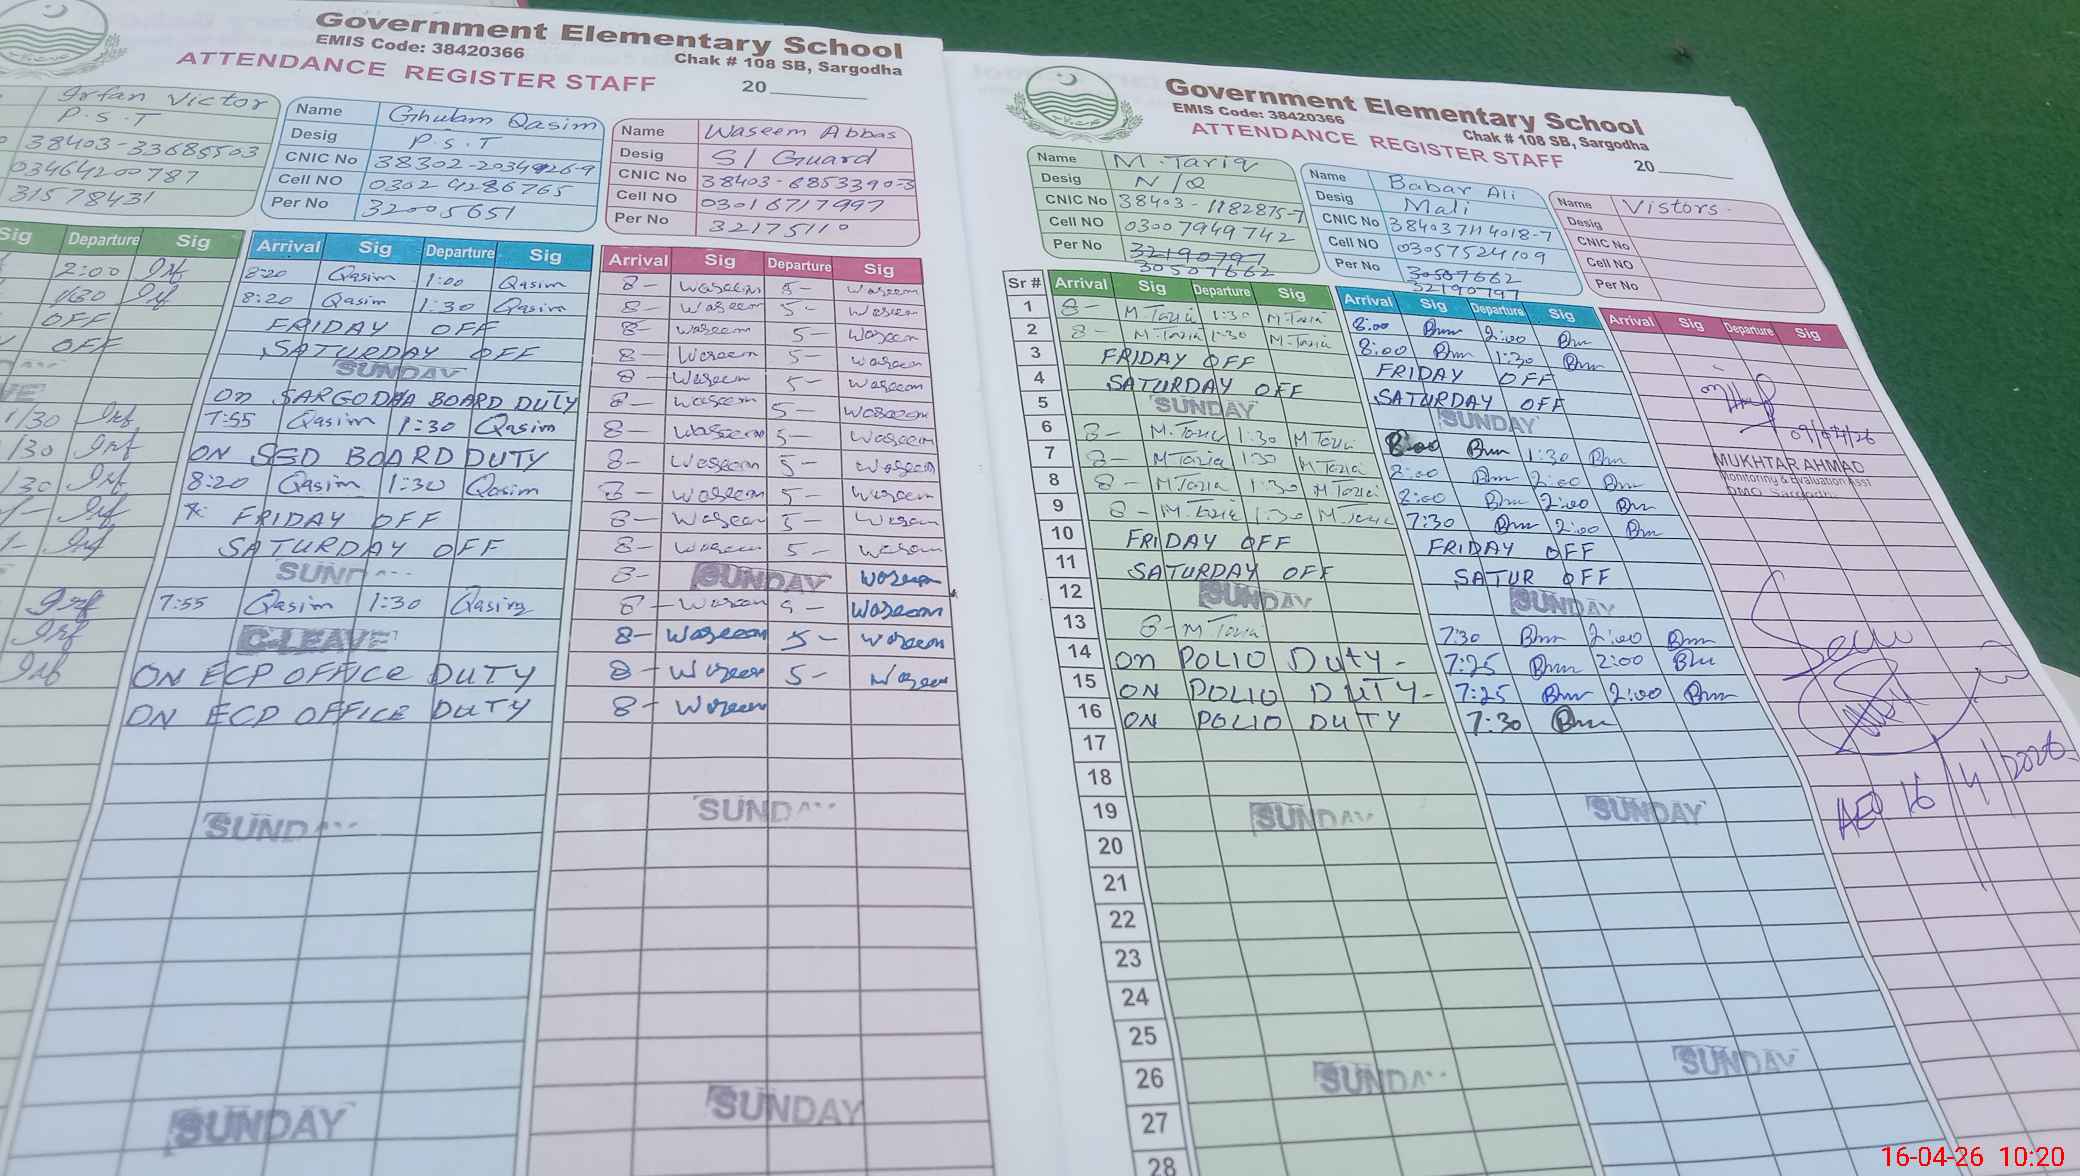 Government Elementary School
EMIS Code: 38420366
Chak # 108 SB, Sargodha
ATTENDANCE REGISTER STAFF
20
Irfan Victor
P.S.T
38403-33685503
03464200787
31578431
Name Ghulam Qasim
Desig P.S.T
CNIC No 38302-2034926-9
Cell NO 0302 4286765
Per No 32005651
Name Waseem Abbas
Desig S/Guard
CNIC No 38403-6853390-3
Cell NO 03016717997
Per No 32175110
Sig Departure Sig
2:00 Irf
1/30 Irf
OFF
OFF
1/30 Irf
1/30 Irf
1/30 Irf
Irf
Irf
Irf
Irf
Irf
Arrival Sig Departure Sig
8:20 Qasim 1:00 Qasim
8:20 Qasim 1:30 Qasim
FRIDAY OFF
SATURDAY OFF
SUNDAY
ON SARGODHA BOARD DUTY
7:55 Qasim 1:30 Qasim
ON SGD BOARD DUTY
8:20 Qasim 1:30 Qasim
FRIDAY OFF
SATURDAY OFF
SUNDAY
7:55 Qasim 1:30 Qasim
C-LEAVE
ON ECP OFFICE DUTY
ON ECP OFFICE DUTY
SUNDAY
SUNDAY
Arrival Sig Departure Sig
8- Waseem 5- Waseem
8- Waseem 5- Waseem
8- Waseem 5- Waseem
8- Waseem 5- Waseem
8- Waseem 5- Waseem
8- Waseem 5- Waseem
8- Waseem 5- Waseem
8- Waseem 5- Waseem
8- Waseem 5- Waseem
8- Waseem 5- Waseem
8- Waseem 5- Waseem
8- SUNDAY Waseem
8- Waseem 5- Waseem
8- Waseem 5- Waseem
8- Waseem 5- Waseem
8- Waseem
SUNDAY
SUNDAY
Government Elementary School
EMIS Code: 38420366
Chak # 108 SB, Sargodha
ATTENDANCE REGISTER STAFF
20
Name M.Tariq
Desig N/Q
CNIC No 38403-1182875-7
Cell NO 03007949742
Per No 32190797
30507662
Name Babar Ali
Desig Mali
CNIC No 384037114018-7
Cell NO 03057524109
Per No 30507662
32190797
Name Vistors
Desig
CNIC No
Cell NO
Per No
Sr # Arrival Sig Departure Sig
1 8- M.Tariq 1:30 M.Tariq
2 8- M.Tariq 1:30 M.Tariq
3 FRIDAY OFF
4 SATURDAY OFF
5 SUNDAY
6 8- M.Tariq 1:30 M Tariq
7 8- M Tariq 1:30 M Tariq
8 8- M Tariq 1:30 M Tariq
9 8- M.Tariq 1:30 M.Tariq
10 FRIDAY OFF
11 SATURDAY OFF
12 SUNDAY
13 8- M Tariq
14 ON POLIO Duty-
15 ON POLIO DUTY-
16 ON POLIO DUTY
17
18
19 SUNDAY
20
21
22
23
24
25
26 SUNDAY
27
28
Arrival Sig Departure Sig
8:00 2:00
8:00 1:30
FRIDAY OFF
SATURDAY OFF
SUNDAY
8:00 1:30
8:00 2:00
8:00 2:00
7:30 2:00
FRIDAY OFF
SATUR OFF
SUNDAY
7:30 2:00
7:25 2:00
7:25 2:00
7:30
SUNDAY
SUNDAY
Arrival Sig Departure Sig
09/04/26
MUKHTAR AHMAD
Monitoring & Evaluation Asst
DMO Sargodha
AEO 16/4/2026
16-04-26 10:20